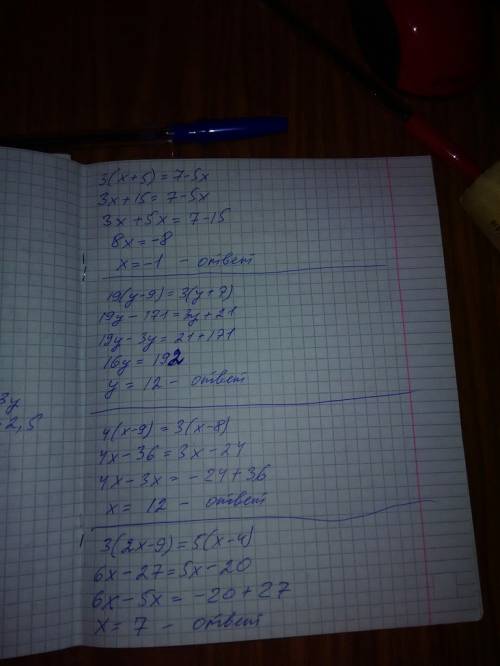 3(x+5)=7-5x
3x+15=7-5x
3x+5x=7-15
8x=-8
x=-1 - ответ
19(y-9)=3(y+7)
19y-171=3y+21
19y-3y=21+171
16y=192
y=12 - ответ
3y
2,5
4(x-9)=3(x-8)
4x-36=3x-24
4x-3x=-24+36
x=12 - ответ
3(2x-9)=5(x-4)
6x-27=5x-20
6x-5x=-20+27
x=7 - ответ